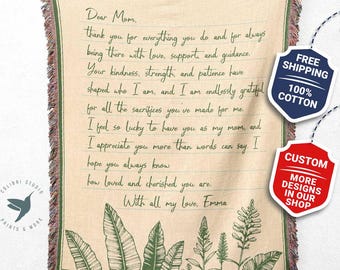 Dear Mom,
thank you for everything you do and for always
being there with love, support, and guidance.
Your kindness, strength, and patience have
shaped who I am, and I am endlessly grateful
for all the sacrifices you've made for me.
I feel so lucky to have you as my mom, and
I appreciate you more than words can say. I
hope you always know
how loved and cherished you are.
With all my love, Emma
FREE
SHIPPING
100%
COTTON
CUSTOM
MORE
DESIGNS
IN OUR
SHOP
COLIBRI STUDIO
PRINTS & MORE